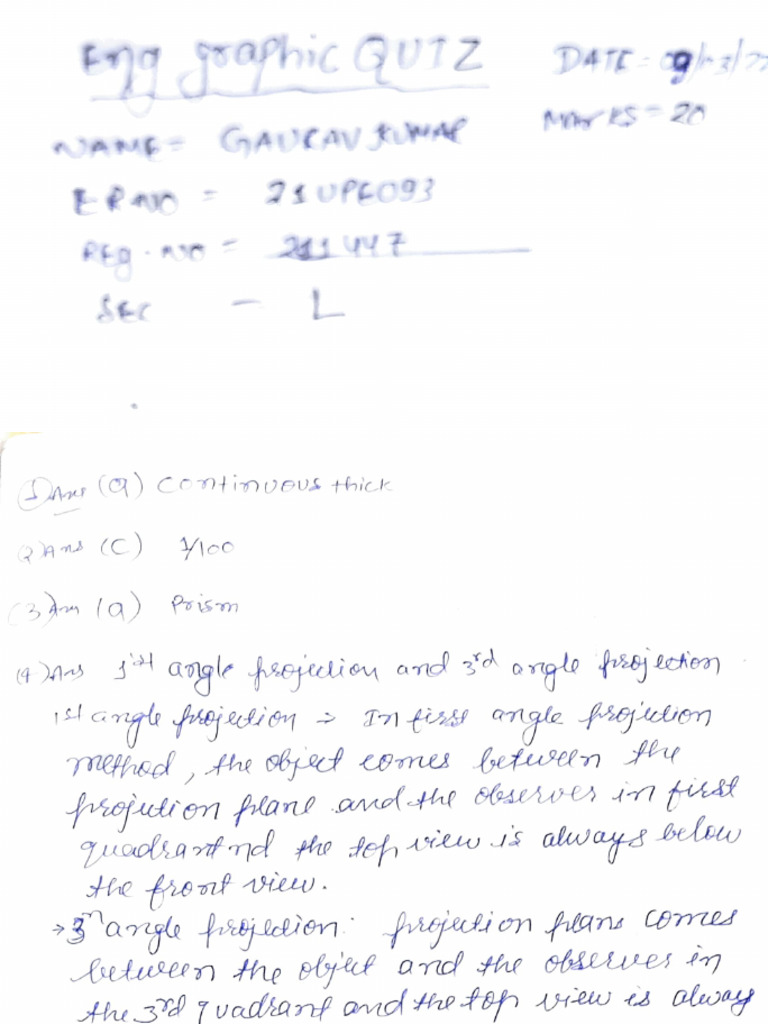 Eng graphic QUIZ
DATE = 09/03/22
NAME = GAURAV KUMAR
Marks = 20
ER NO = 21UPE093
Reg. no = 211447
SEC - L
(1) Ans (a) continuous thick
(2) Ans (C) 1/100
(3) Ans (a) Prism
(4) Ans 1st angle projection and 3rd angle projection
1st angle projection => In first angle projection
method, the object comes between the
projection plane and the observer in first
quadrant nd the top view is always below
the front view.
→ 3rd angle projection: projection plans comes
between the object and the observes in
the 3rd quadrant and the top view is always